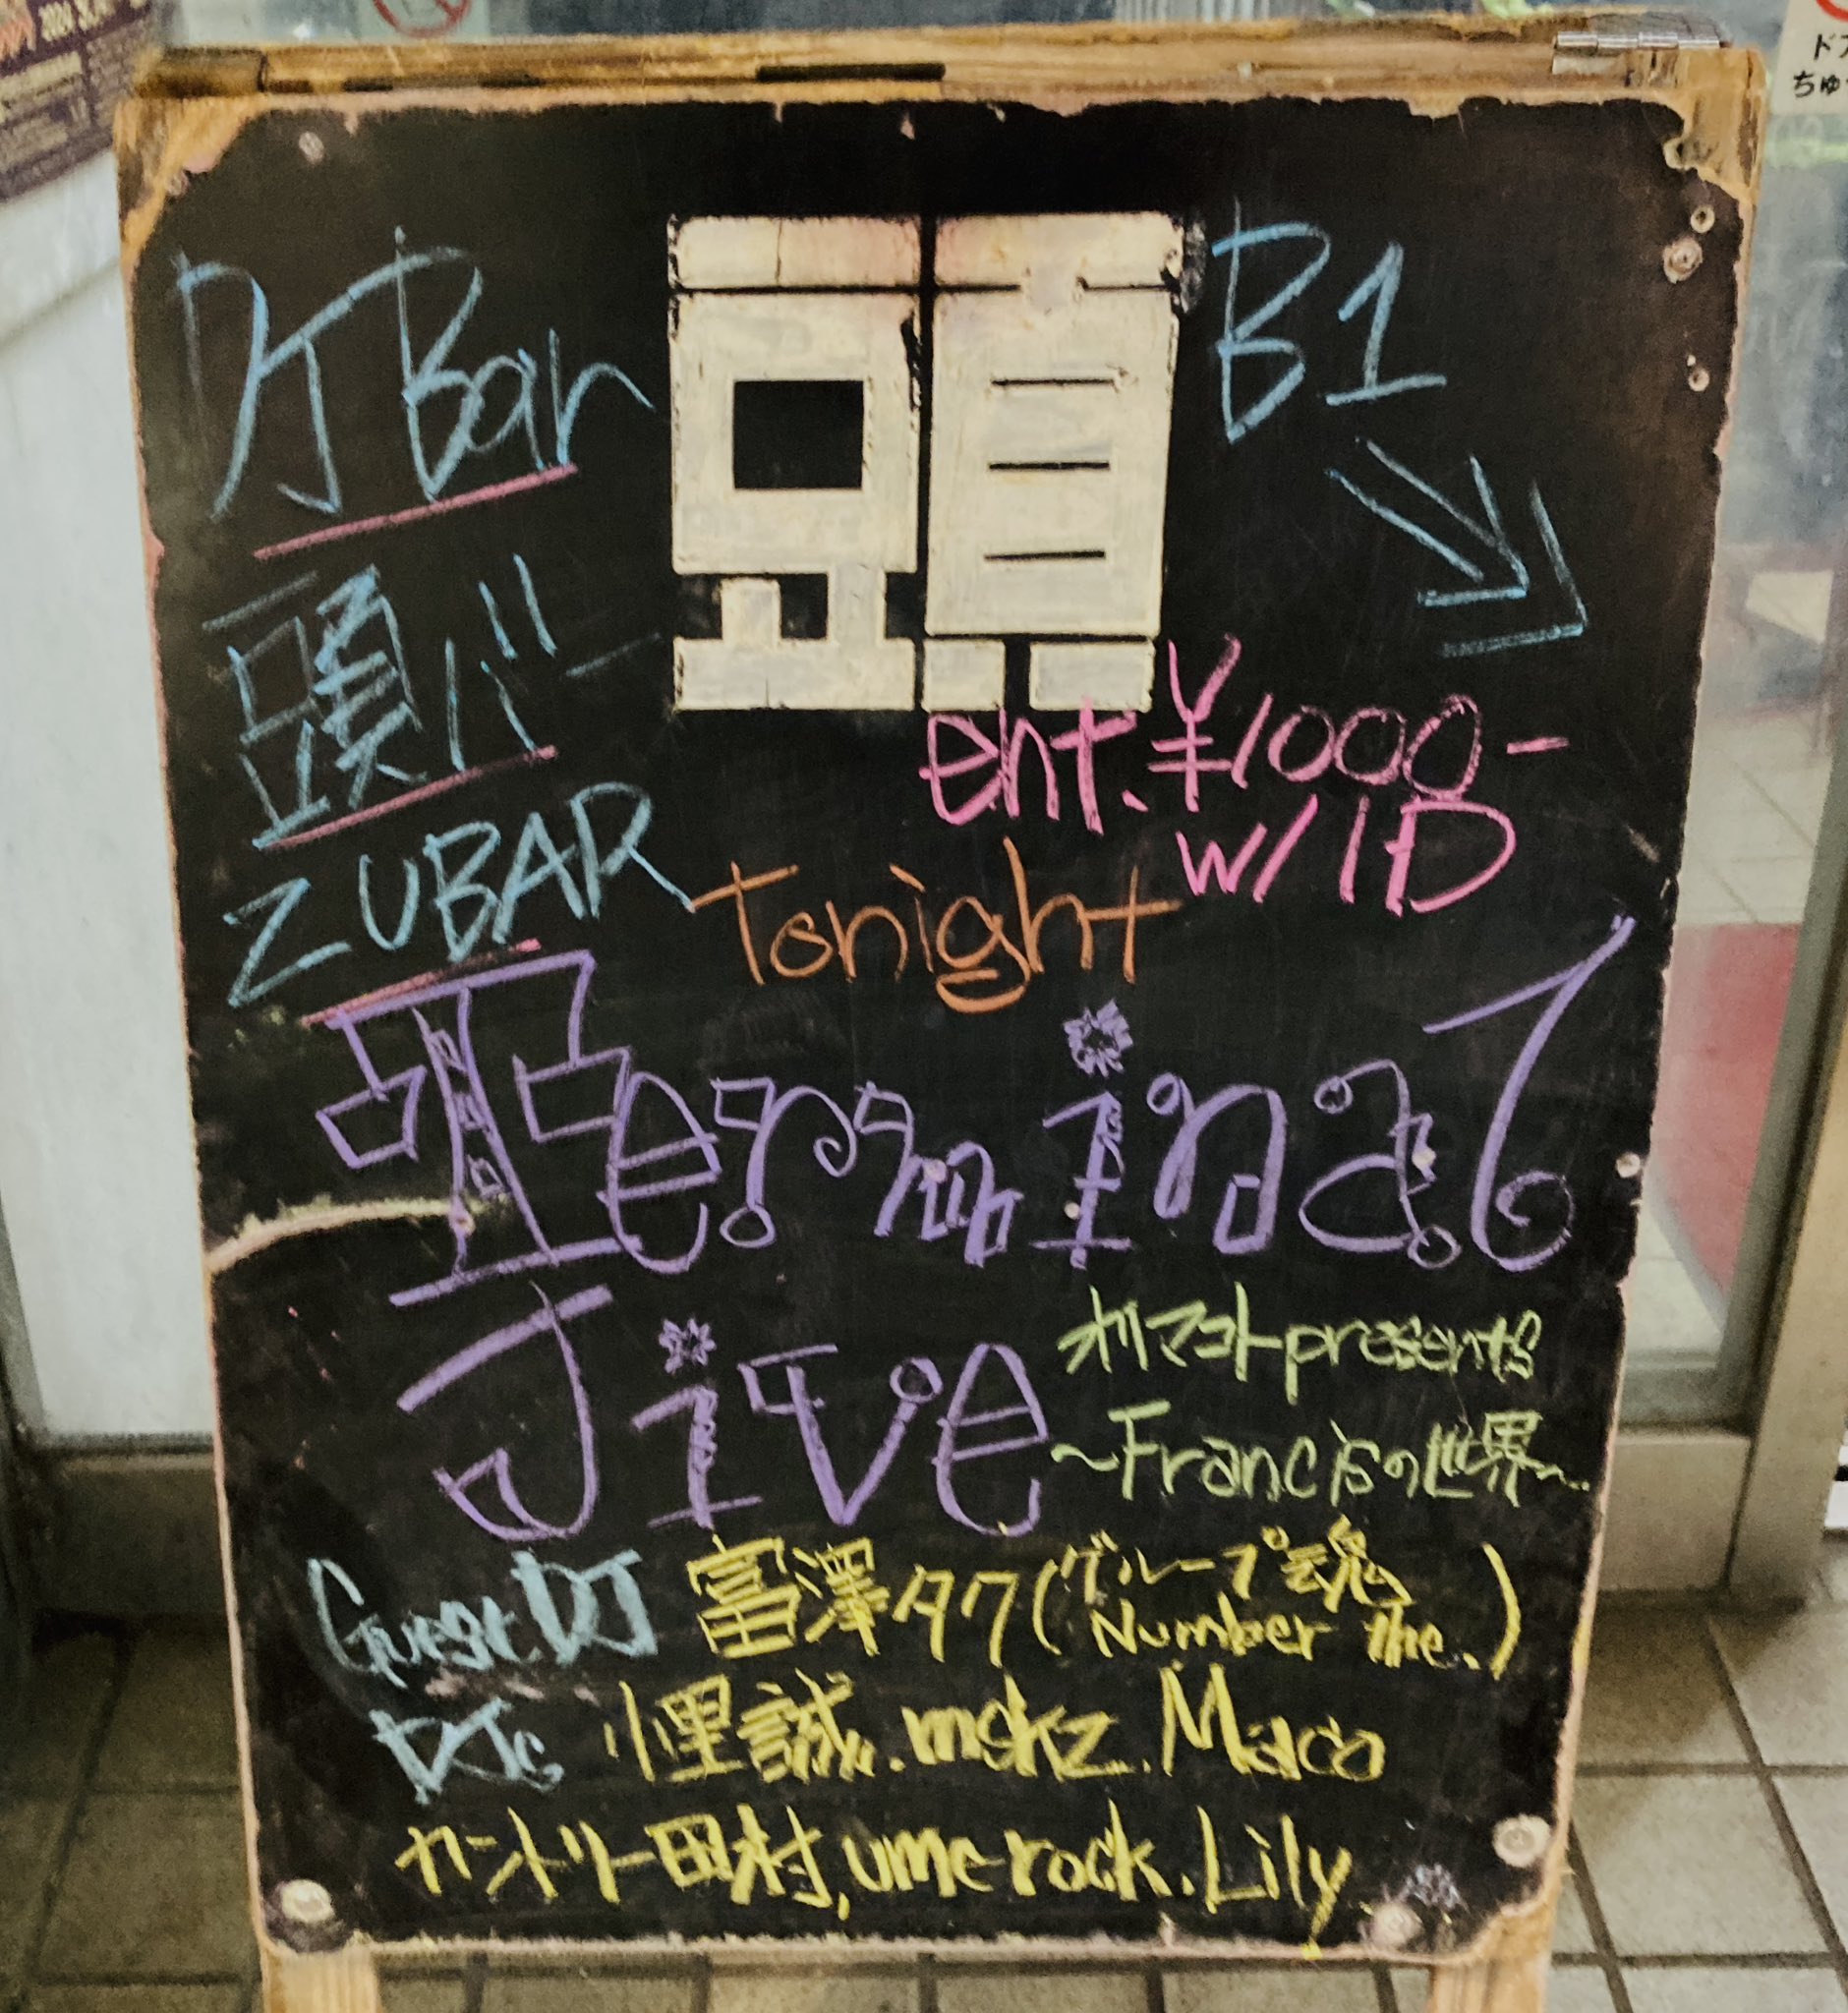 DJ Bar
頭
B1
頭バー
ZUBAR
ent. ¥1000-
w/ ID
Tonight
Terminal
Jive
オリマコト presents
~Francisの世界~
Guest DJ 富澤タク(グループ魂
Number the.)
DJs 小里誠.mskz.Maco
カントリー田村,umerock.Lily
ちゅ